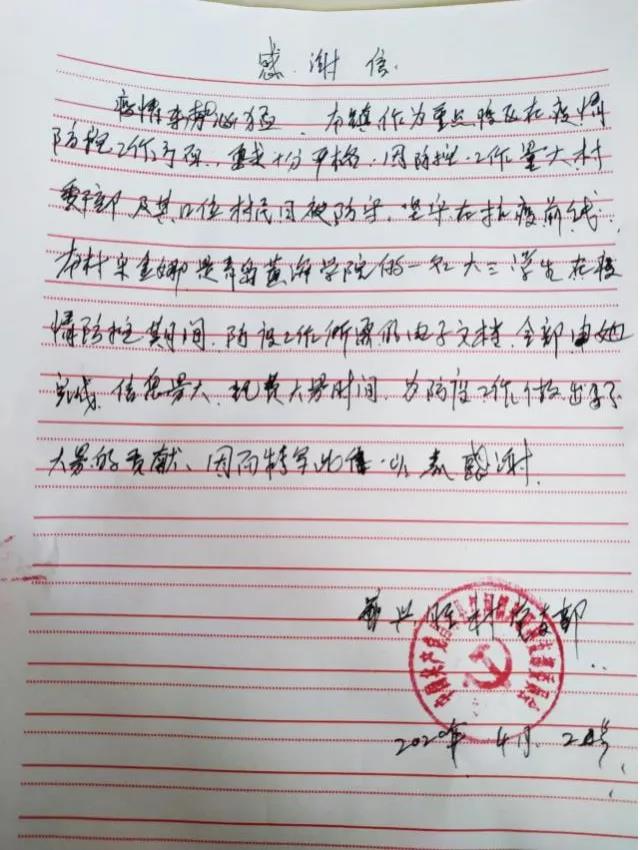 感谢信
疫情来势凶猛,本镇作为重点防区在疫情
防控工作方面,要求十分严格,因防控工作量大,村
委干部及其他村民日夜防守,坚守在抗疫前线,
本村宋金娜是青岛黄海学院的一名大三学生在疫
情防控期间,防疫工作所需的电子文档,全部由她
完成,信息量大,耗费大量时间,为防疫工作做出了
大量的贡献、因而特写此信,以表感谢.
村支部
2020年4月2号